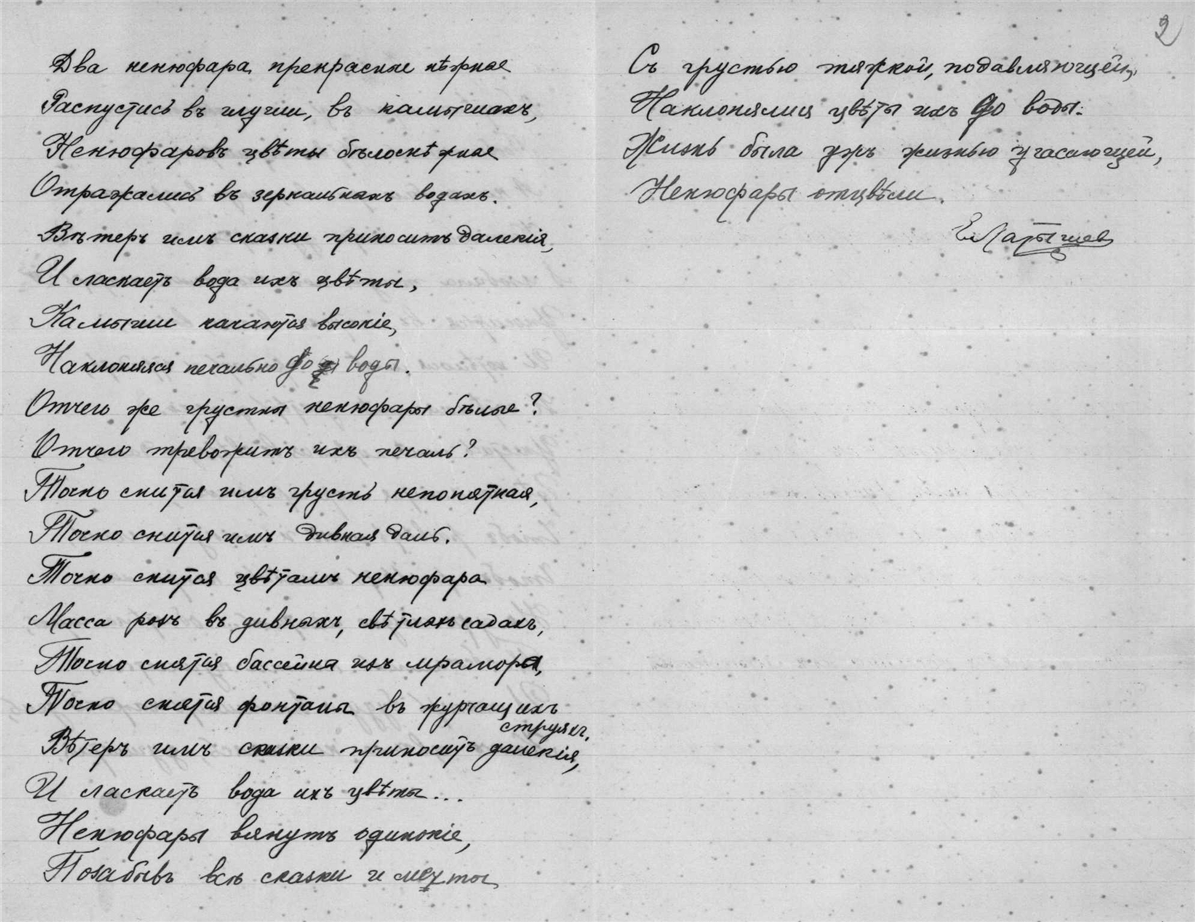 Два ненюфара прекрасные нѣжные
Распустись въ глуши, въ камышахъ,
Ненюфаровъ цвѣты бѣлоснѣжные
Отражались въ зеркальныхъ водахъ.
Вѣтеръ имъ сказки приноситъ далекія,
И ласкаетъ вода ихъ цвѣты,
Камыши качаются высокіе,
Наклоняяся печально до воды.
Отчего же грустны ненюфары бѣлые?
Отчего тревожитъ ихъ печаль?
Точно снится имъ грусть непонятная,
Точно снится имъ дивная даль.
Точно снится цвѣтамъ ненюфара
Масса розъ въ дивныхъ, свѣтлыхъ садахъ,
Точно снятся бассейна изъ мрамора,
Точно снятся фонтаны въ журчащихъ
струяхъ.
Вѣтеръ имъ сказки приноситъ далекія,
И ласкаетъ вода ихъ цвѣты...
Ненюфары вянутъ одинокіе,
Позабывъ всѣ сказки и мечты
2
Съ грустью тяжкой, подавляющей,
Наклонялись цвѣты ихъ до воды.
Жизнь была ужъ жизнью угасающей,
Ненюфары отцвѣли.
Е. Латышев